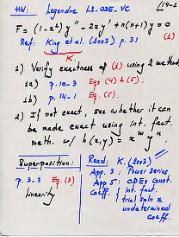 HW: Legendre L2. ODE-VC 19-2
F = (1-x²)y'' - 2xy' + n(n+1)y = 0
(1)
Ref: King et al. (2003) p. 31
K.
1) Verify exactness of (1) using 2 methods
1a) p. 10-3 Eqs (4) & (5).
1b) p. 14-1 Eq. (5).
2) If not exact, see whether it can
be made exact using int. fact.
meth. w/ h(x,y) = xᵐ yⁿ.
Superposition:
p. 3-3 Eq. (3)
linearity
Read: K. (2003)
App 3: Power series
App 5: ODEs const.
Coeff. int. fact.
trial soln &
undetermined
coeff.